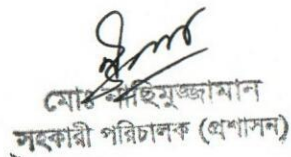 মোঃ নাছিমুজ্জামান
সহকারী পরিচালক (প্রশাসন)